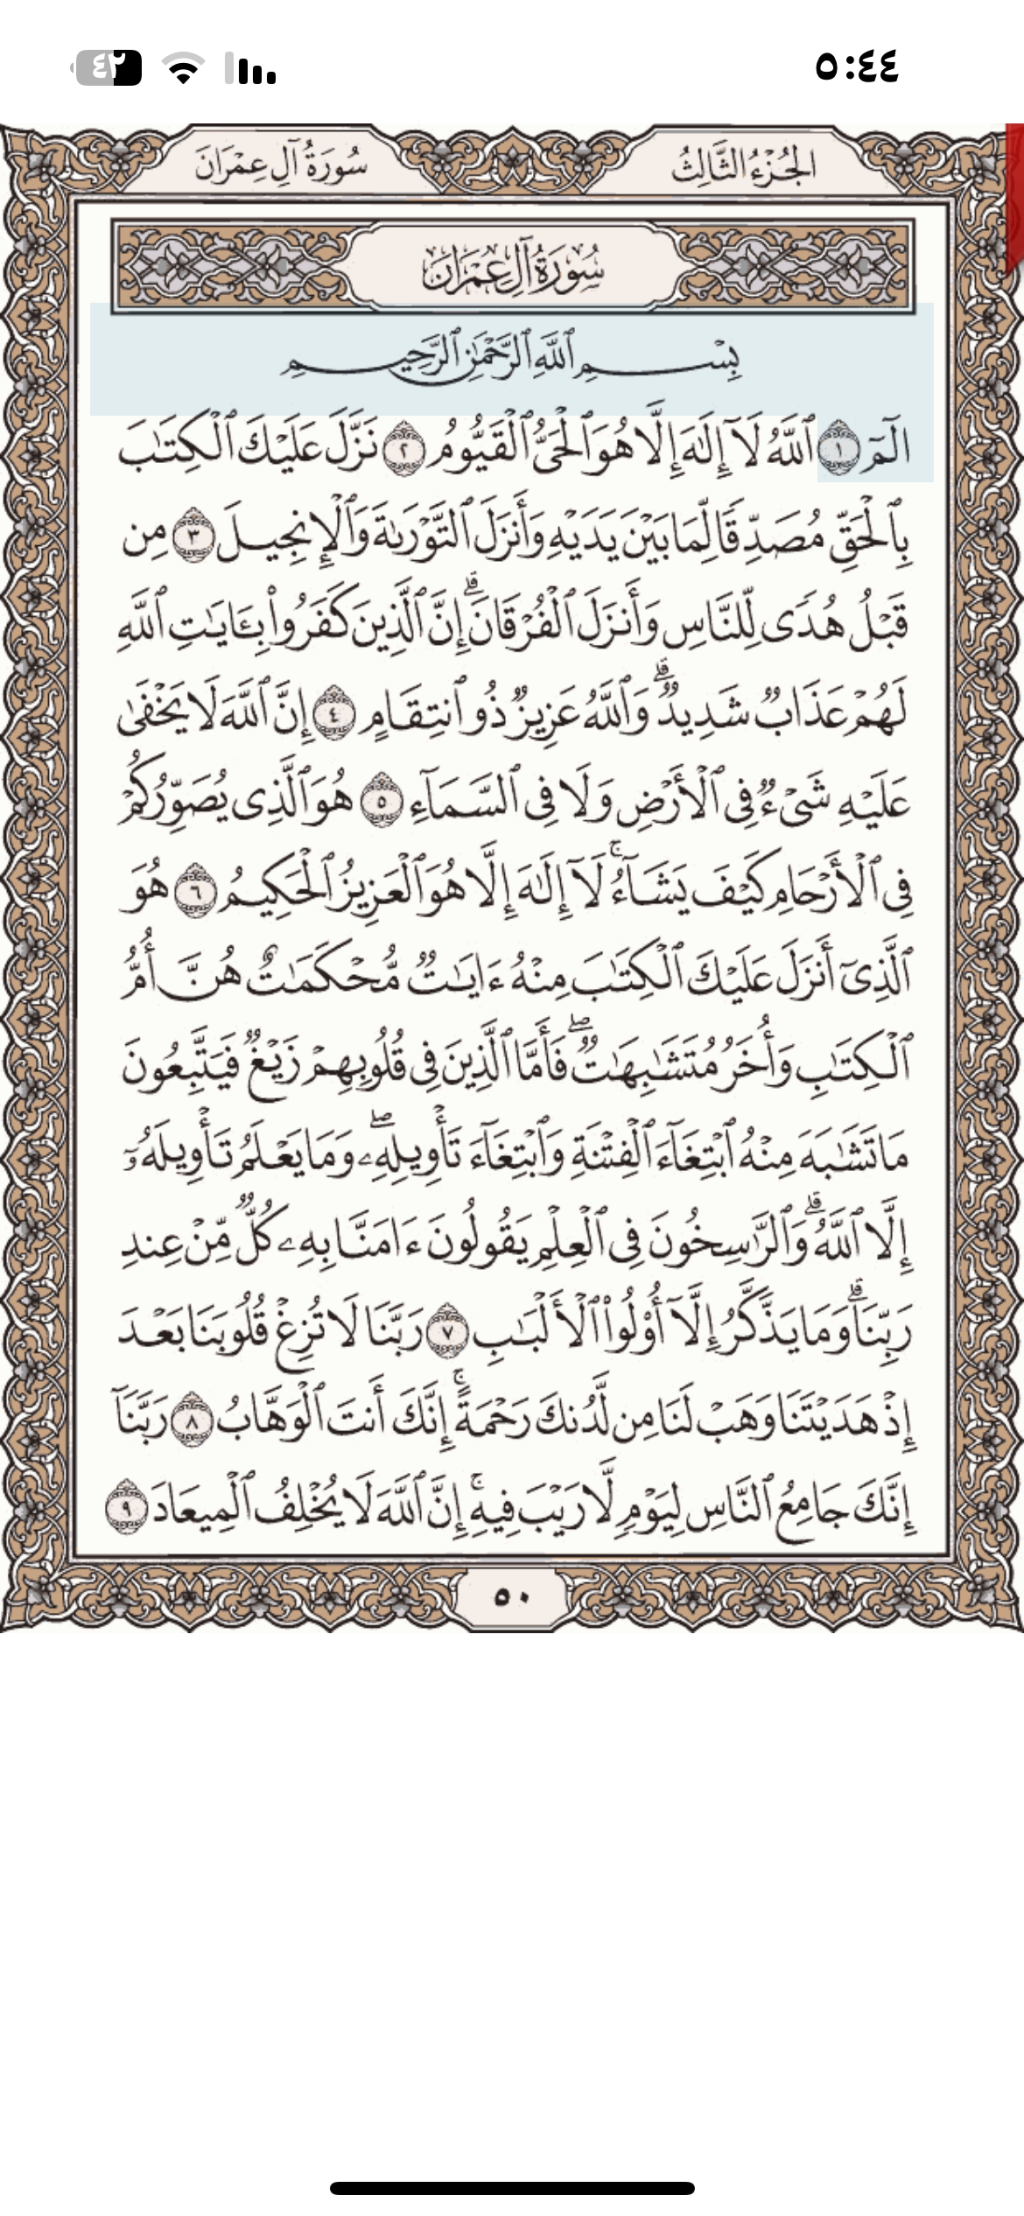 ٥:٤٤
٤٢
الجُزْءُ الثَّالِثُ
سُورَةُ آلِ عِمْرَانَ
سُورَةُ آلِ عِمْرَانَ
بِسْمِ ٱللَّهِ ٱلرَّحْمَٰنِ ٱلرَّحِيمِ
الٓمٓ ١ ٱللَّهُ لَآ إِلَٰهَ إِلَّا هُوَ ٱلْحَىُّ ٱلْقَيُّومُ ٢ نَزَّلَ عَلَيْكَ ٱلْكِتَٰبَ
بِٱلْحَقِّ مُصَدِّقًا لِّمَا بَيْنَ يَدَيْهِ وَأَنزَلَ ٱلتَّوْرَىٰةَ وَٱلْإِنجِيلَ ٣ مِن
قَبْلُ هُدًى لِّلنَّاسِ وَأَنزَلَ ٱلْفُرْقَانَۗ إِنَّ ٱلَّذِينَ كَفَرُوا۟ بِـَٔايَٰتِ ٱللَّهِ
لَهُمْ عَذَابٌ شَدِيدٌۗ وَٱللَّهُ عَزِيزٌ ذُو ٱنتِقَامٍ ٤ إِنَّ ٱللَّهَ لَا يَخْفَىٰ
عَلَيْهِ شَىْءٌ فِى ٱلْأَرْضِ وَلَا فِى ٱلسَّمَآءِ ٥ هُوَ ٱلَّذِى يُصَوِّرُكُمْ
فِى ٱلْأَرْحَامِ كَيْفَ يَشَآءُۚ لَآ إِلَٰهَ إِلَّا هُوَ ٱلْعَزِيزُ ٱلْحَكِيمُ ٦ هُوَ
ٱلَّذِىٓ أَنزَلَ عَلَيْكَ ٱلْكِتَٰبَ مِنْهُ ءَايَٰتٌ مُّحْكَمَٰتٌ هُنَّ أُمُّ
ٱلْكِتَٰبِ وَأُخَرُ مُتَشَٰبِهَٰتٌۖ فَأَمَّا ٱلَّذِينَ فِى قُلُوبِهِمْ زَيْغٌ فَيَتَّبِعُونَ
مَا تَشَٰبَهَ مِنْهُ ٱبْتِغَآءَ ٱلْفِتْنَةِ وَٱبْتِغَآءَ تَأْوِيلِهِۦۖ وَمَا يَعْلَمُ تَأْوِيلَهُۥٓ
إِلَّا ٱللَّهُۗ وَٱلرَّٰسِخُونَ فِى ٱلْعِلْمِ يَقُولُونَ ءَامَنَّا بِهِۦ كُلٌّ مِّنْ عِندِ
رَبِّنَاۗ وَمَا يَذَّكَّرُ إِلَّآ أُو۟لُوا۟ ٱلْأَلْبَٰبِ ٧ رَبَّنَا لَا تُزِغْ قُلُوبَنَا بَعْدَ
إِذْ هَدَيْتَنَا وَهَبْ لَنَا مِن لَّدُنكَ رَحْمَةًۚ إِنَّكَ أَنتَ ٱلْوَهَّابُ ٨ رَبَّنَآ
إِنَّكَ جَامِعُ ٱلنَّاسِ لِيَوْمٍ لَّا رَيْبَ فِيهِۚ إِنَّ ٱللَّهَ لَا يُخْلِفُ ٱلْمِيعَادَ ٩
٥٠